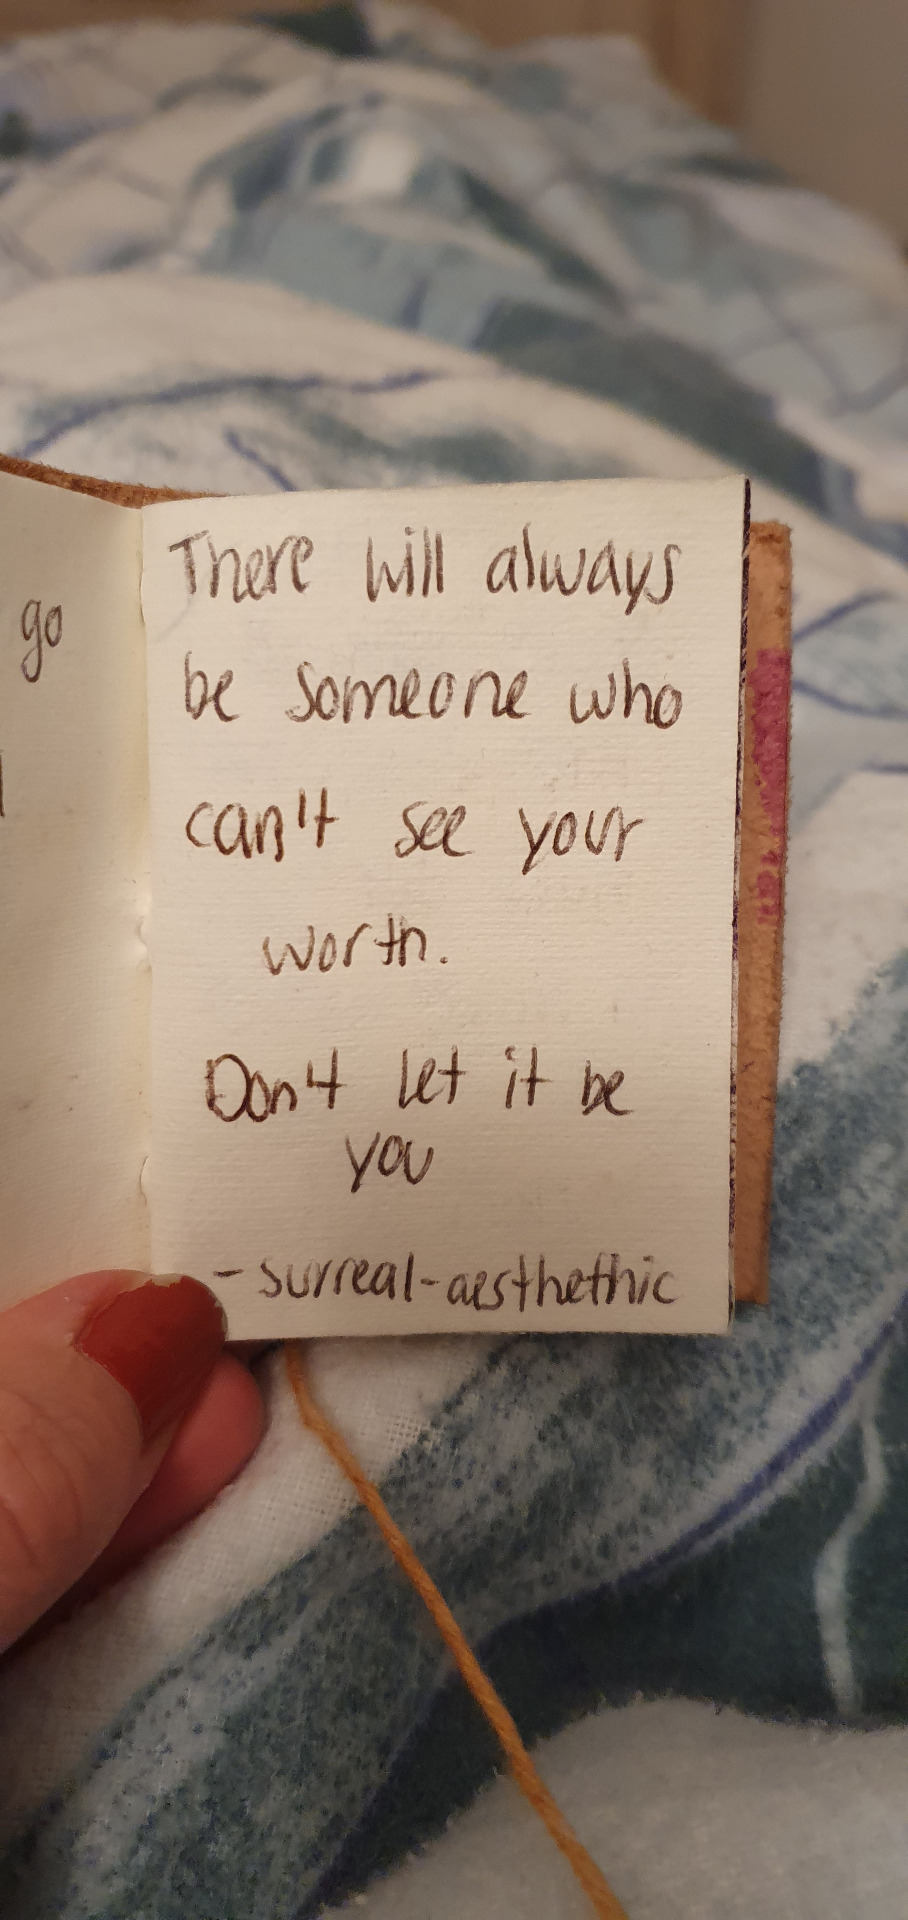 go
There will always
be someone who
can't see your
worth.
Don't let it be
you
-surreal-aesthethic